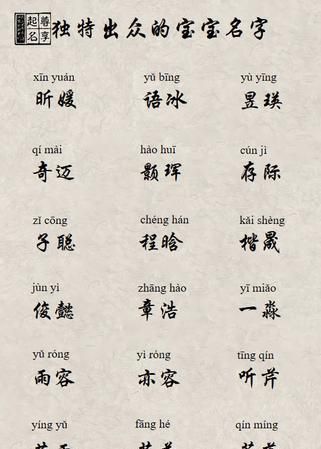 起名
尊享
独特出众的宝宝名字
xīn yuán yǔ bīng yù yīng
昕媛 语冰 昱瑛
qí mài hào huī cún jì
奇迈 颢珲 存际
zǐ cōng chéng hán kǎi shèng
子聪 程晗 楷晟
jùn yì zhāng hào yī miǎo
俊懿 章浩 一淼
yǔ róng yì róng tīng qín
雨容 亦容 听芹
yíng yǔ fāng hé qín míng